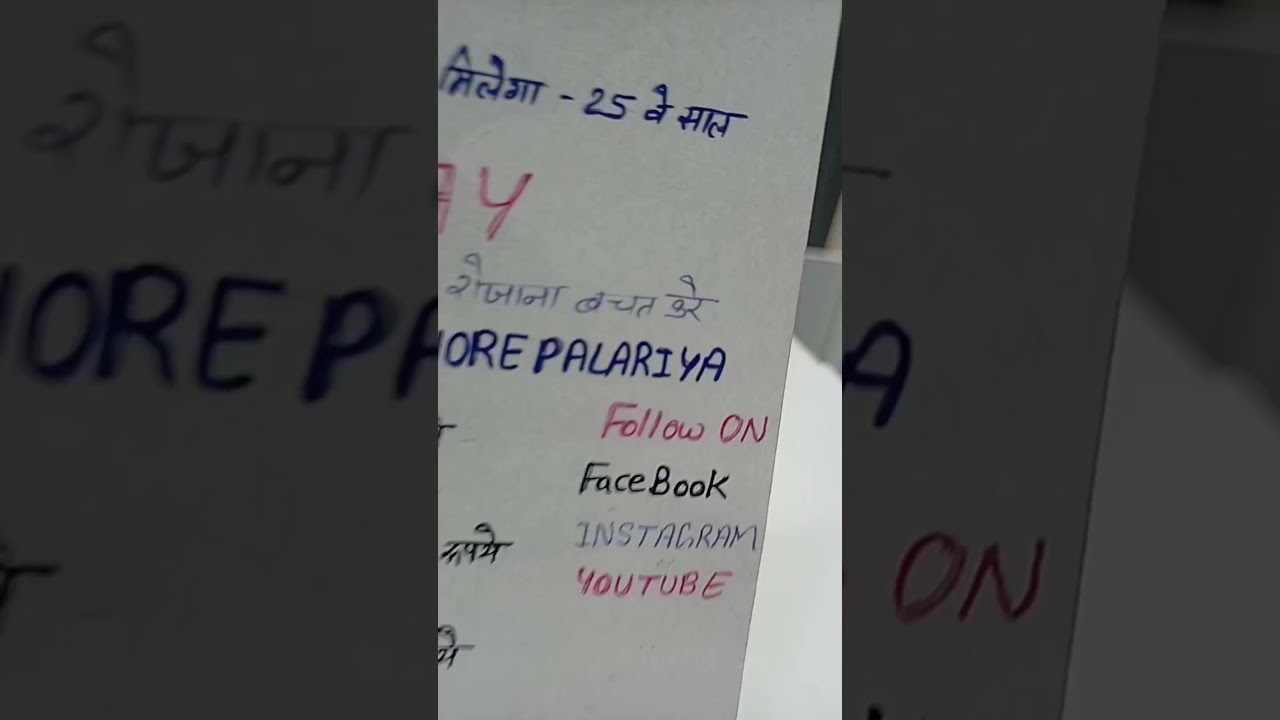 मिलेगा - 25 वे साल
AY
रोजाना बचत करे
ORE PALARIYA
Follow ON
FaceBook
रूपये
INSTAGRAM
YOUTUBE